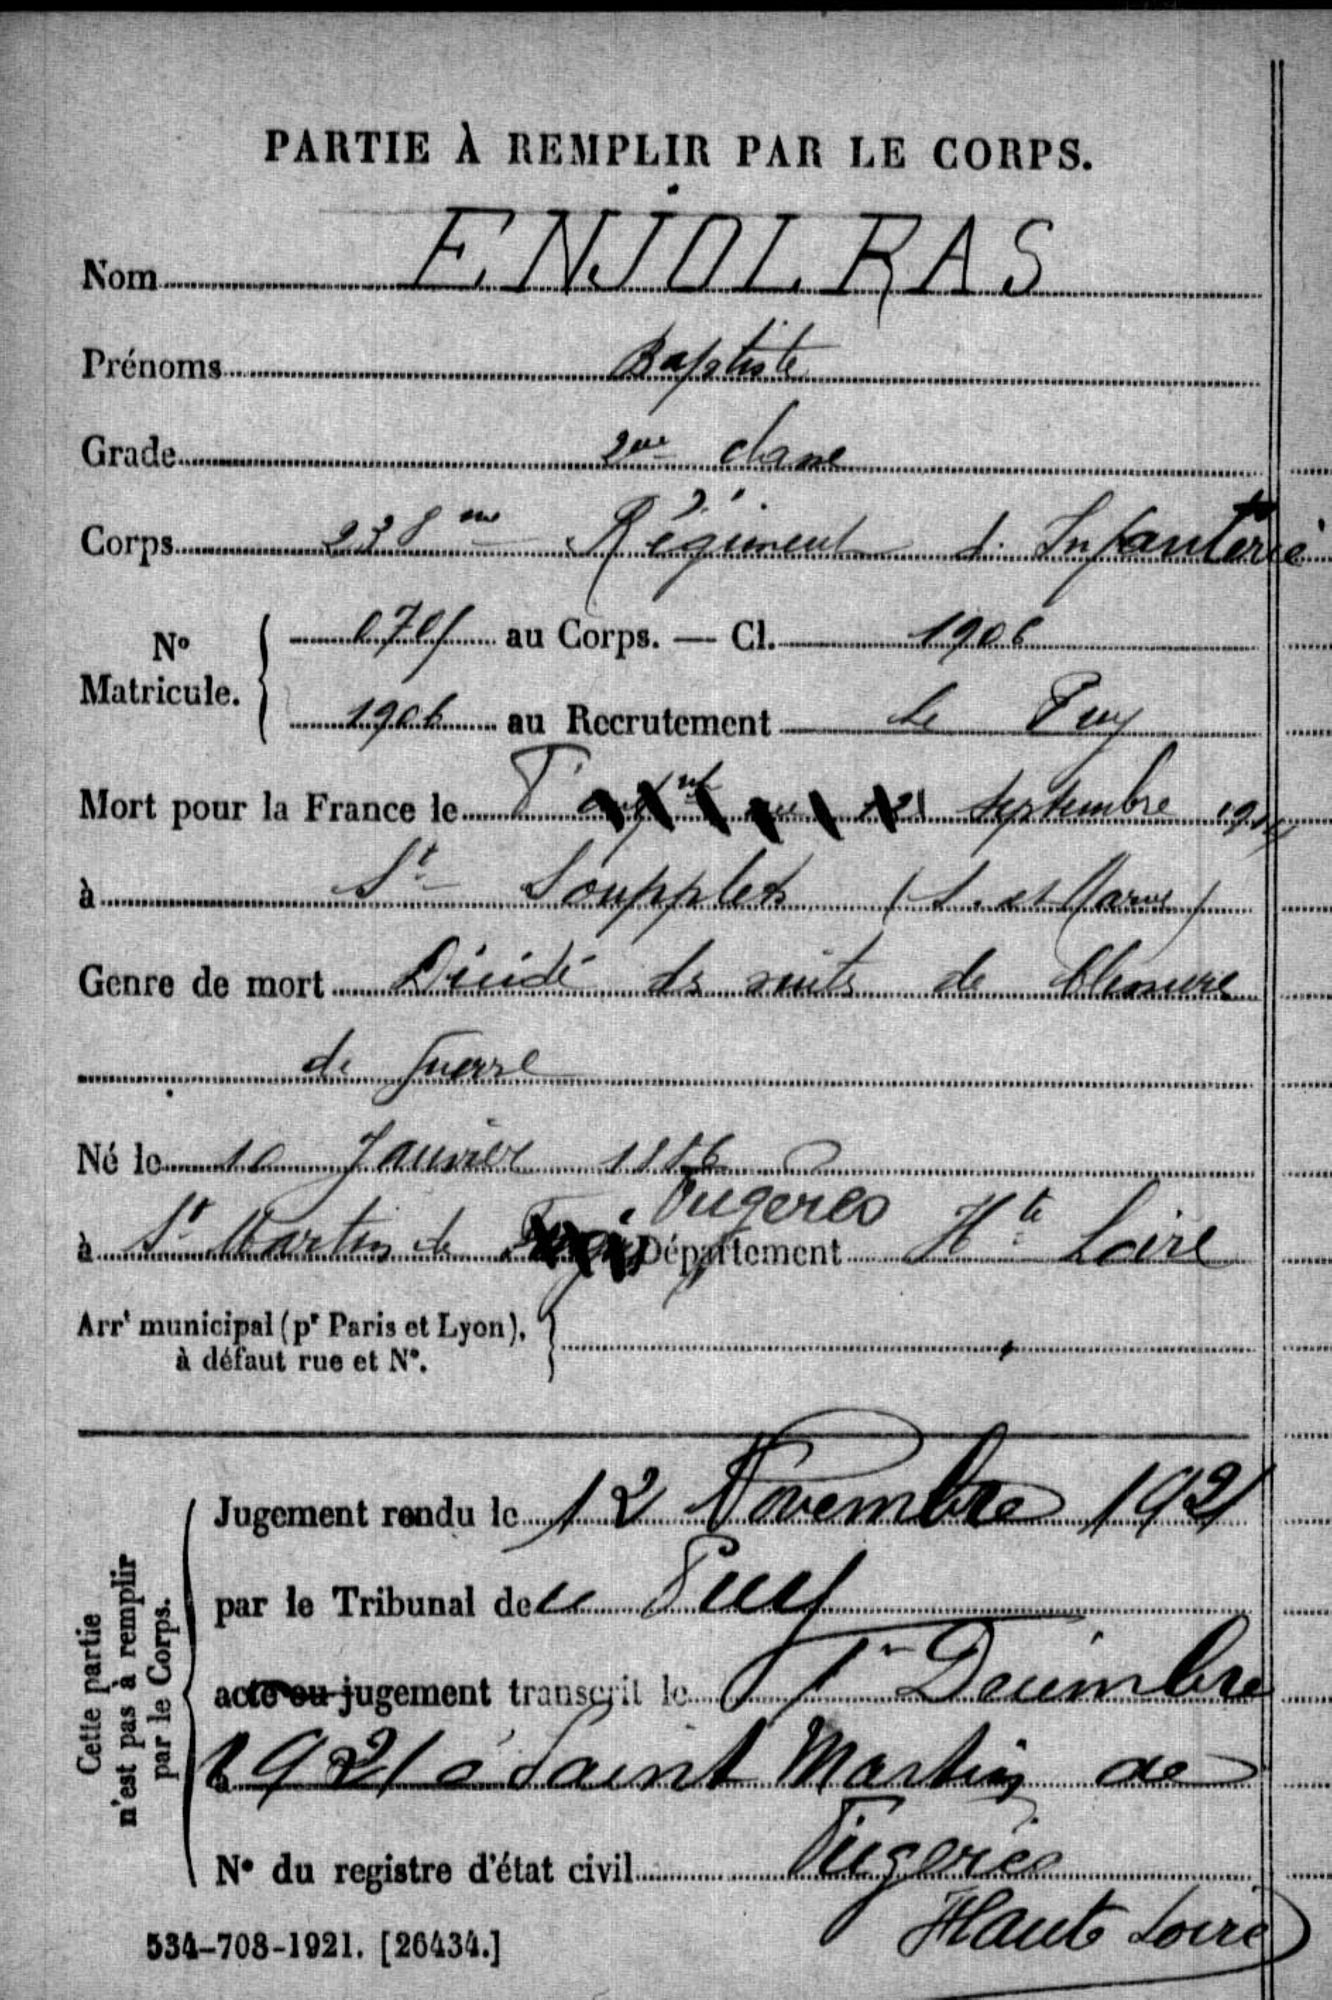 PARTIE À REMPLIR PAR LE CORPS.
Nom ENJOLRAS
Prénoms Baptiste
Grade 2me classe
Corps 238 me Régiment d. Infanterie
No Matricule. 070 au Corps. — Cl. 1906
1906 au Recrutement le Puy
Mort pour la France le 21 septembre 1914
à St Soupplets (S. et Marne)
Genre de mort Décédé des suites de blessure
de guerre
Né le 10 Janvier 1886
Fugères
à St Martin de Département Hte Loire
Arrt municipal (pr Paris et Lyon),
à défaut rue et No.
Cette partie
n'est pas à remplir
par le Corps.
Jugement rendu le 12 Novembre 1921
par le Tribunal de Le Puy
acte ou jugement transcrit le 1r Décembre
1921 à Saint Martin de
No du registre d'état civil Fugères
Haute Loire
534-708-1921. [26434.]